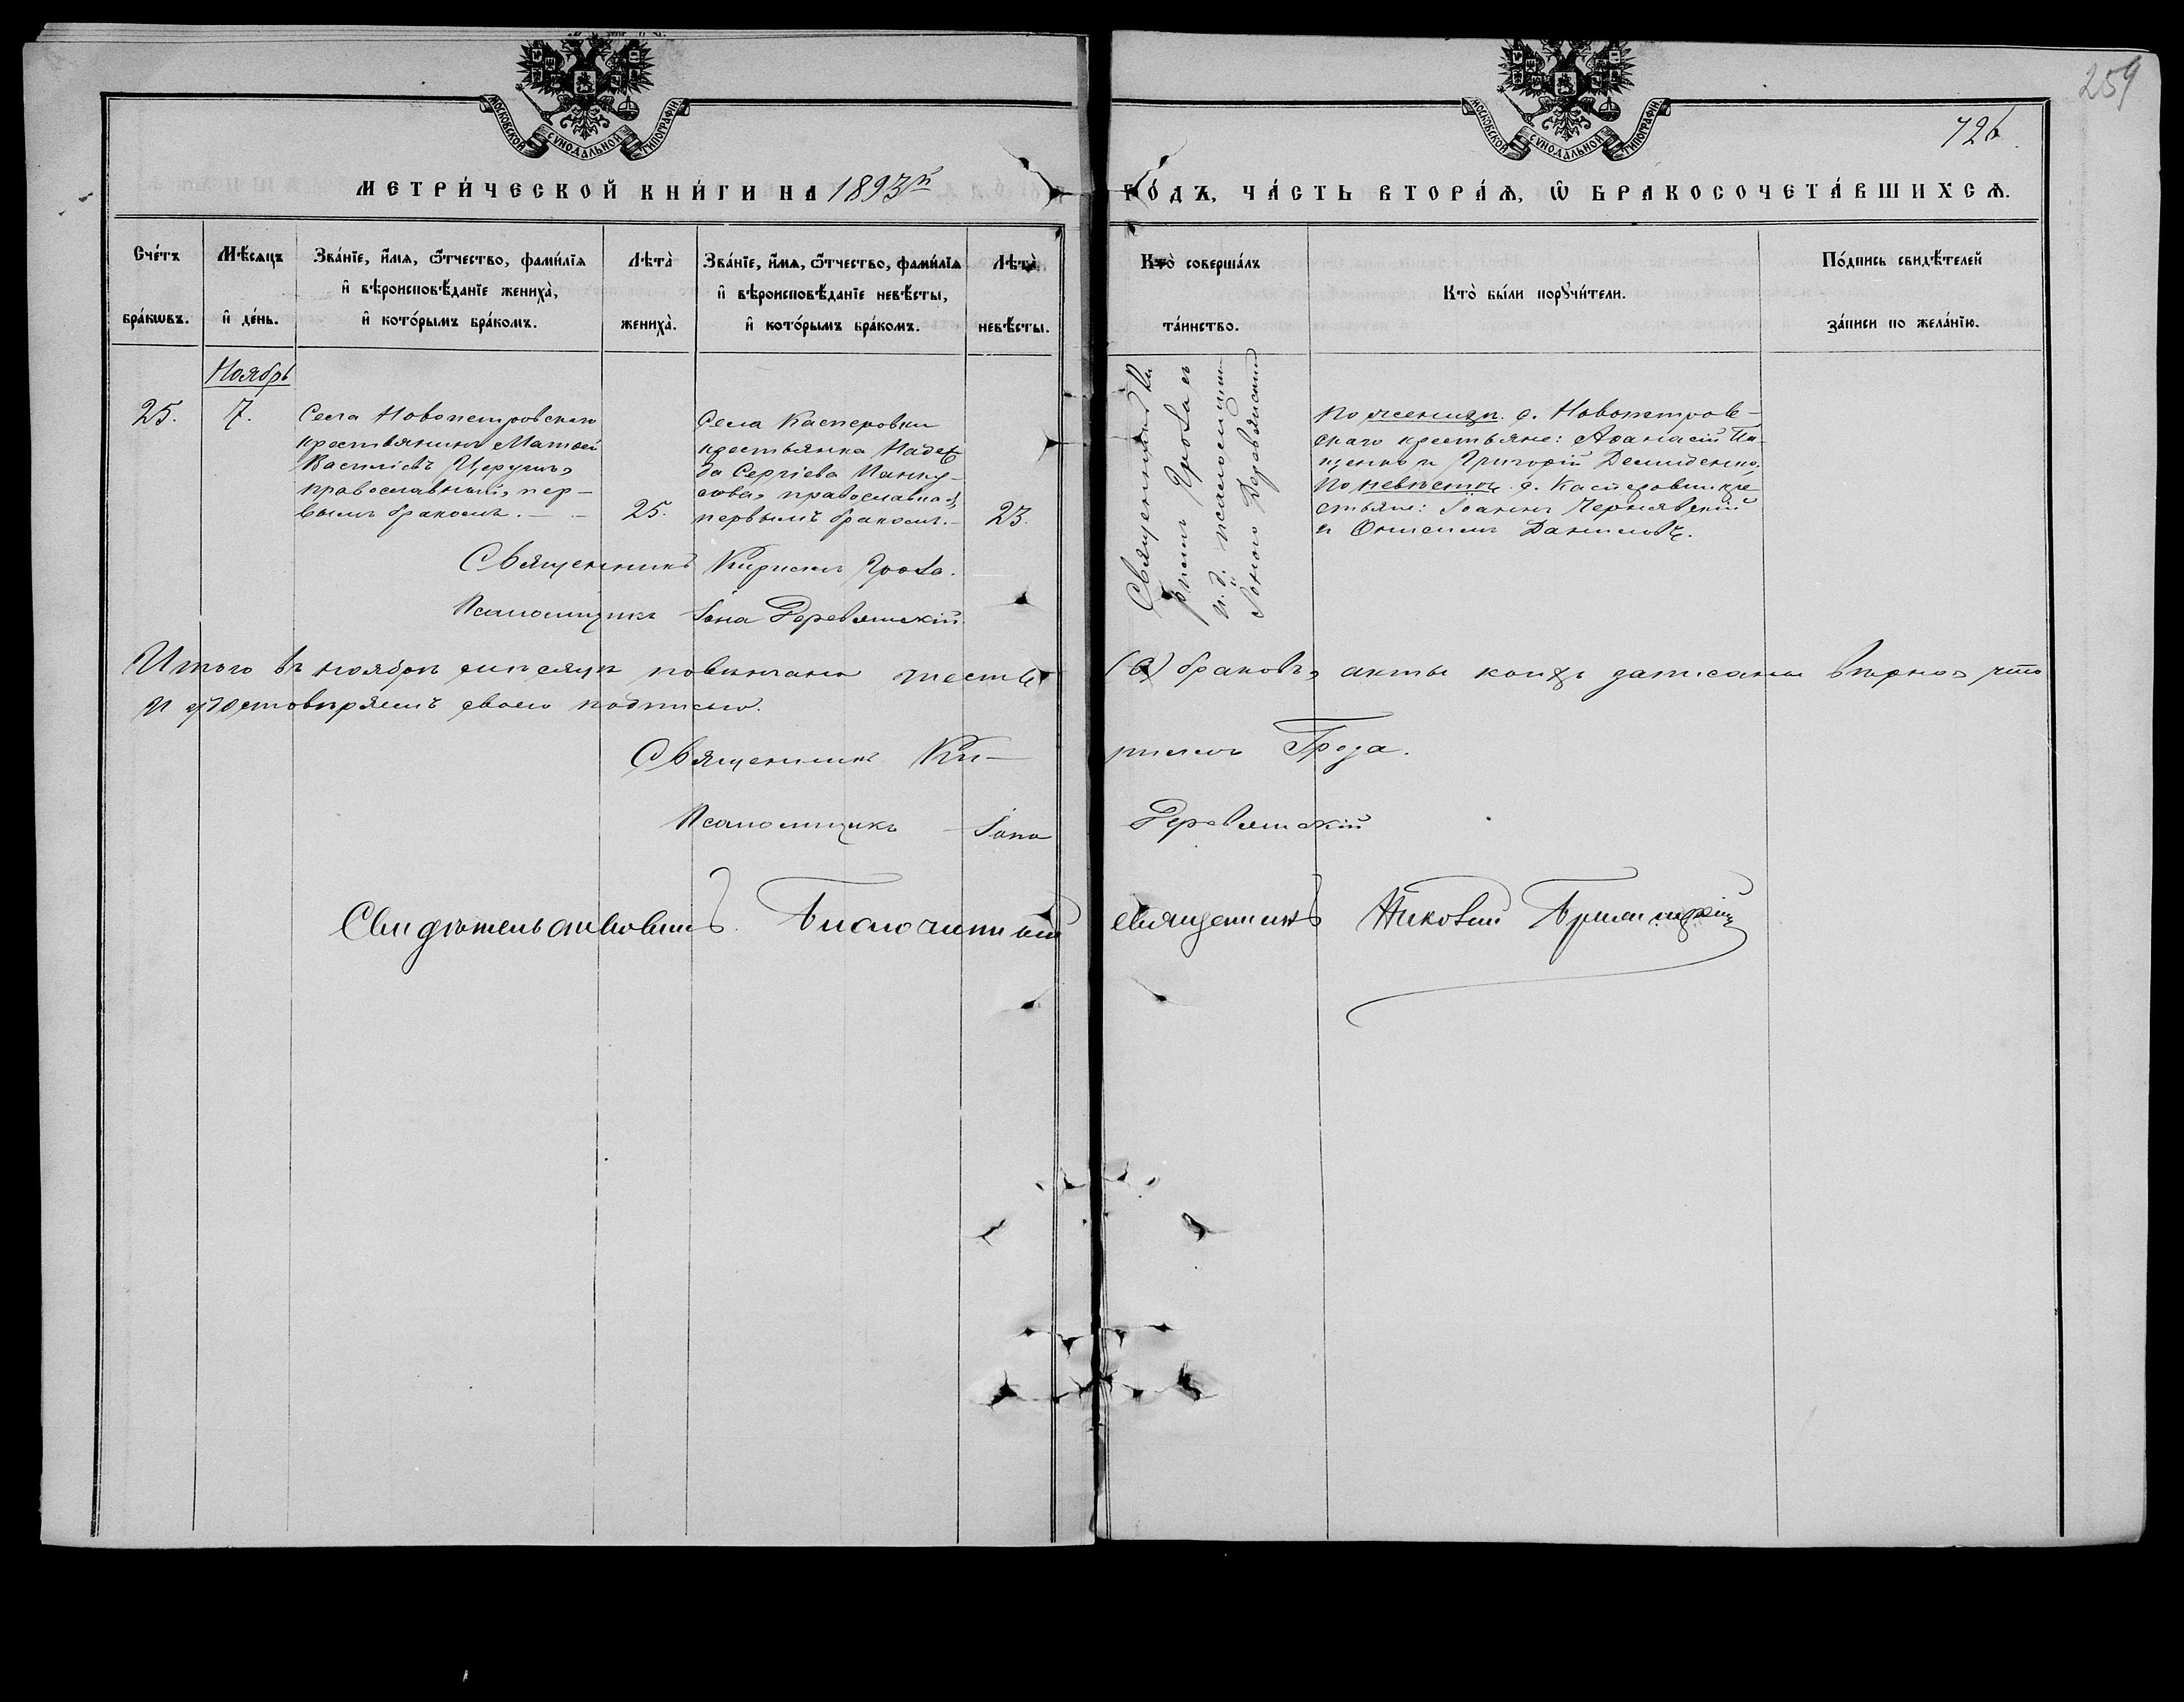 259
МОСКОВСКОЙ СУНОДАЛЬНОЙ ТИПОГРАФІИ
МОСКОВСКОЙ СУНОДАЛЬНОЙ ТИПОГРАФІИ
726.
МЕТРИ́ЧЕСКОЙ КНИ́ГИ НА 1893й
ГО́ДЪ, ЧА́СТЬ ВТОРА́Ѧ, Ѽ БРАКОСОЧЕТА́ВШИХСѦ.
Сче́тъ бра́кѡвъ.
Мѣ́сѧцъ и҆ де́нь.
Зва́нїе, и҆́мѧ, ѻ҆́тчество, фами́лїѧ
и҆ вѣроисповѣ́данїе жениха̀,
и҆ кото́рымъ бра́комъ.
Лѣта̀ жениха̀.
Зва́нїе, и҆́мѧ, ѻ҆́тчество, фами́лїѧ
и҆ вѣроисповѣ́данїе невѣ́сты,
и҆ кото́рымъ бра́комъ.
Лѣта̀ невѣ́сты.
Кто̀ соверша́лъ
та́инство.
Кто̀ бы́ли порꙋчи́тели.
По́дпись свидѣ́телей
за́писи по жела́нїю.
Ноябрь
25.
7.
Села Новопетровскаго
крестьянинъ Матѳей
Василіевъ Церушъ,
православный, пер-
вымъ бракомъ.
25.
Села Касперовки
крестьянка Надеж
да Сергіева Манку-
сова, православная,
первымъ бракомъ.
23.
Священникъ Ки
риллъ Гроза съ
и. д. псаломщика
Іоною Деревянскимъ
По женихѣ. с. Новопетров-
скаго крестьяне: Аѳанасій Па-
щенко и Григорій Демиденко.
По невѣстѣ с. Касперовки кре-
стьяне: Іоаннъ Чернявскій
и Онисимъ Даниловъ.
Священникъ Кириллъ Гроза.
Псаломщикъ Іона Деревянскій
Итого въ ноябрѣ мѣсяцѣ повѣнчано шесть (6) браковъ, акты коихъ записаны вѣрно, что
и удостовѣряемъ своею подписью.
Священникъ Кириллъ Гроза.
Псаломщикъ Іона Деревянскій
Свидѣтельствовалъ Благочинный священникъ